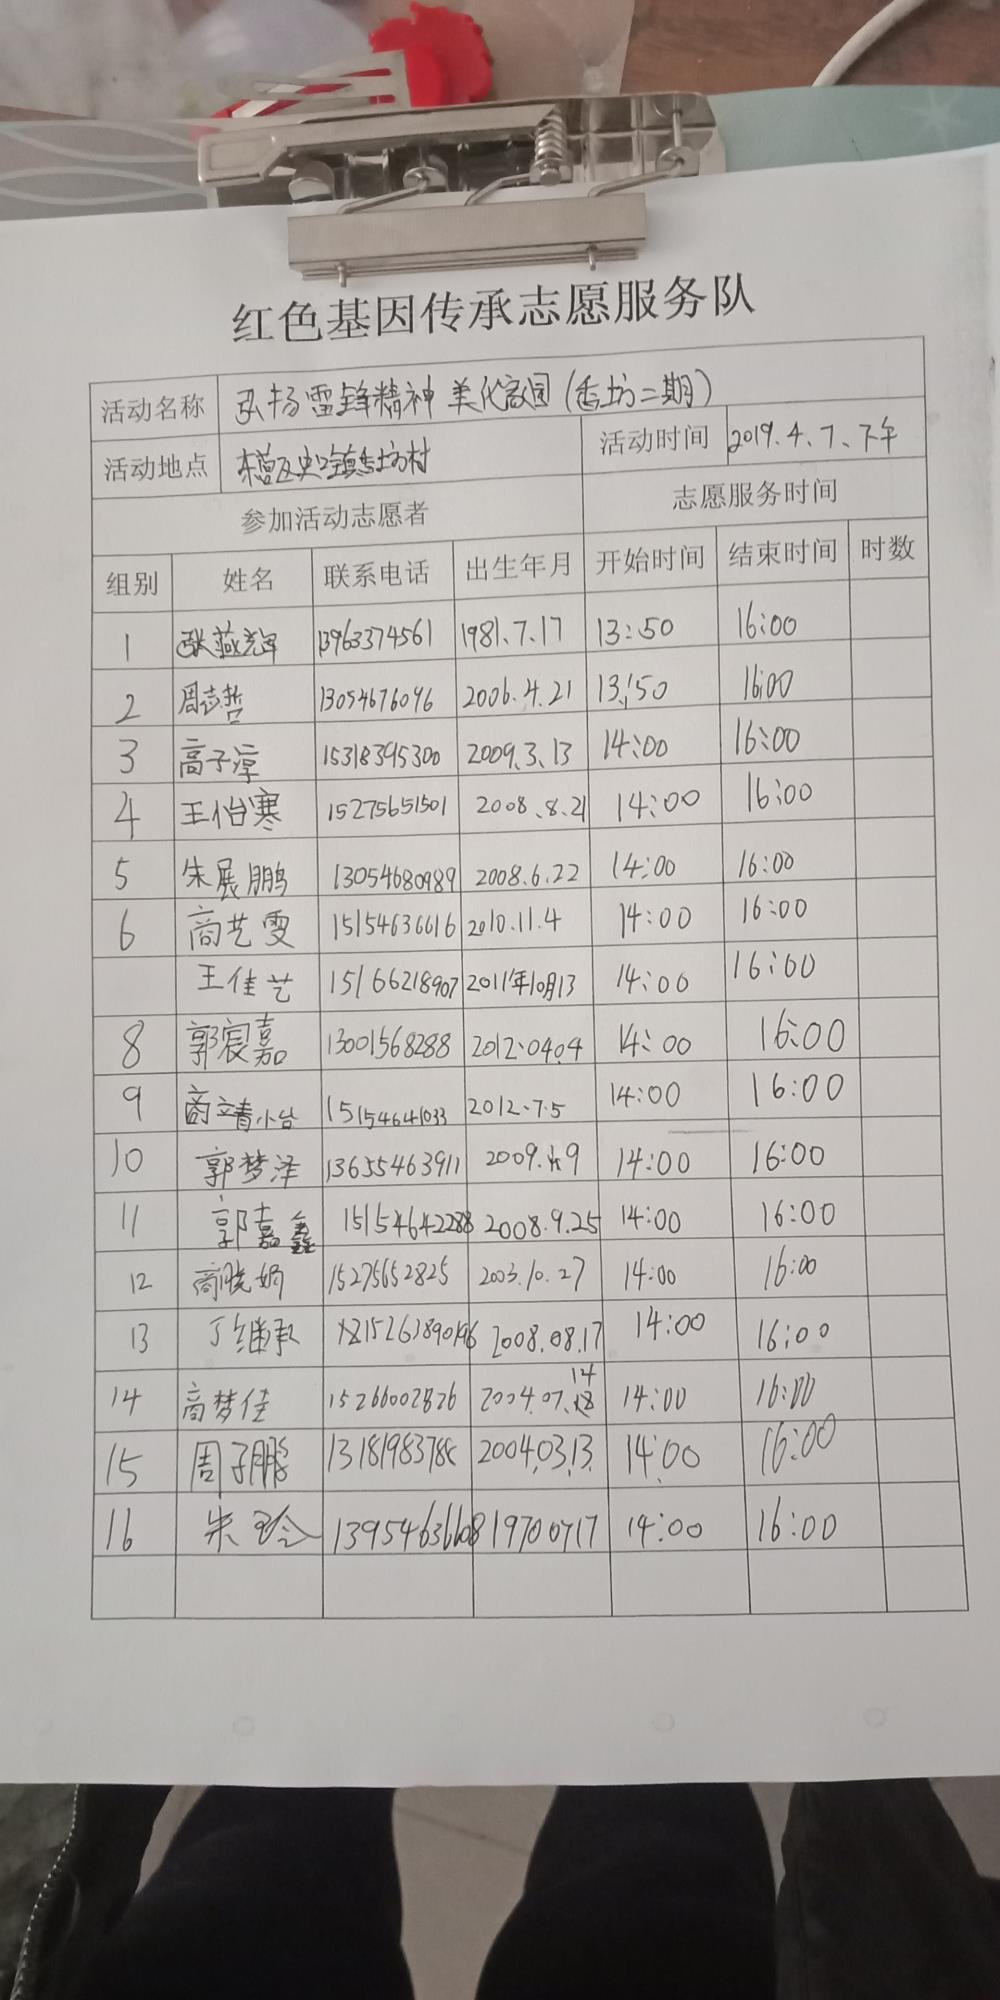 红色基因传承志愿服务队
活动名称 弘扬雷锋精神 美化家园(香坊二期)
活动地点 东营区史口镇香坊村 活动时间 2019.4.7、下午
参加活动志愿者 志愿服务时间
组别 姓名 联系电话 出生年月 开始时间 结束时间 时数
1 张燕辉 13963374561 1981.7.17 13:50 16:00
2 周志哲 13054676096 2006.4.21 13:50 16:00
3 高子淳 15318395300 2009.3.13 14:00 16:00
4 王怡寒 15275651501 2008.8.21 14:00 16:00
5 朱展鹏 13054680989 2008.6.22 14:00 16:00
6 商艺雯 15154636616 2010.11.4 14:00 16:00
王佳艺 15166218907 2011年10月13 14:00 16:00
8 郭宸嘉 13001568288 2012.04.04 14:00 16:00
9 15154641033 2012.7.5 14:00 16:00
10 郭梦泽 13655463911 14:00 16:00
11 郭嘉鑫 15154642288 2008.9.25 14:00 16:00
12 商晓娟 15275652825 2003.10.27 14:00 16:00
13 丁继承 2008.08.17 14:00 16:00
14 高梦佳 15266002826 2004.07.14 14:00 16:00
15 周子鹏 13181983788 2004.03.13. 14:00 16:00
16 朱玲 13954636608 19700717 14:00 16:00